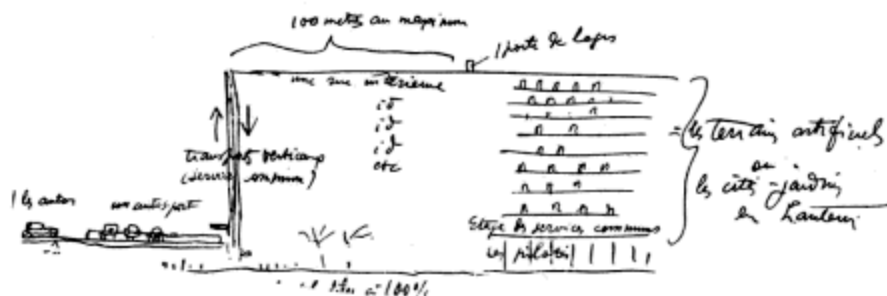 100 metres au maximum
1 porte de logis
une rue intérieure
id
id
id
etc
transports verticaux
(service commun)
les autos
un autoport
= les terrains artificiels
ou
les cités-jardins
en hauteur
Etage des services communs
les pilotis
à 100%